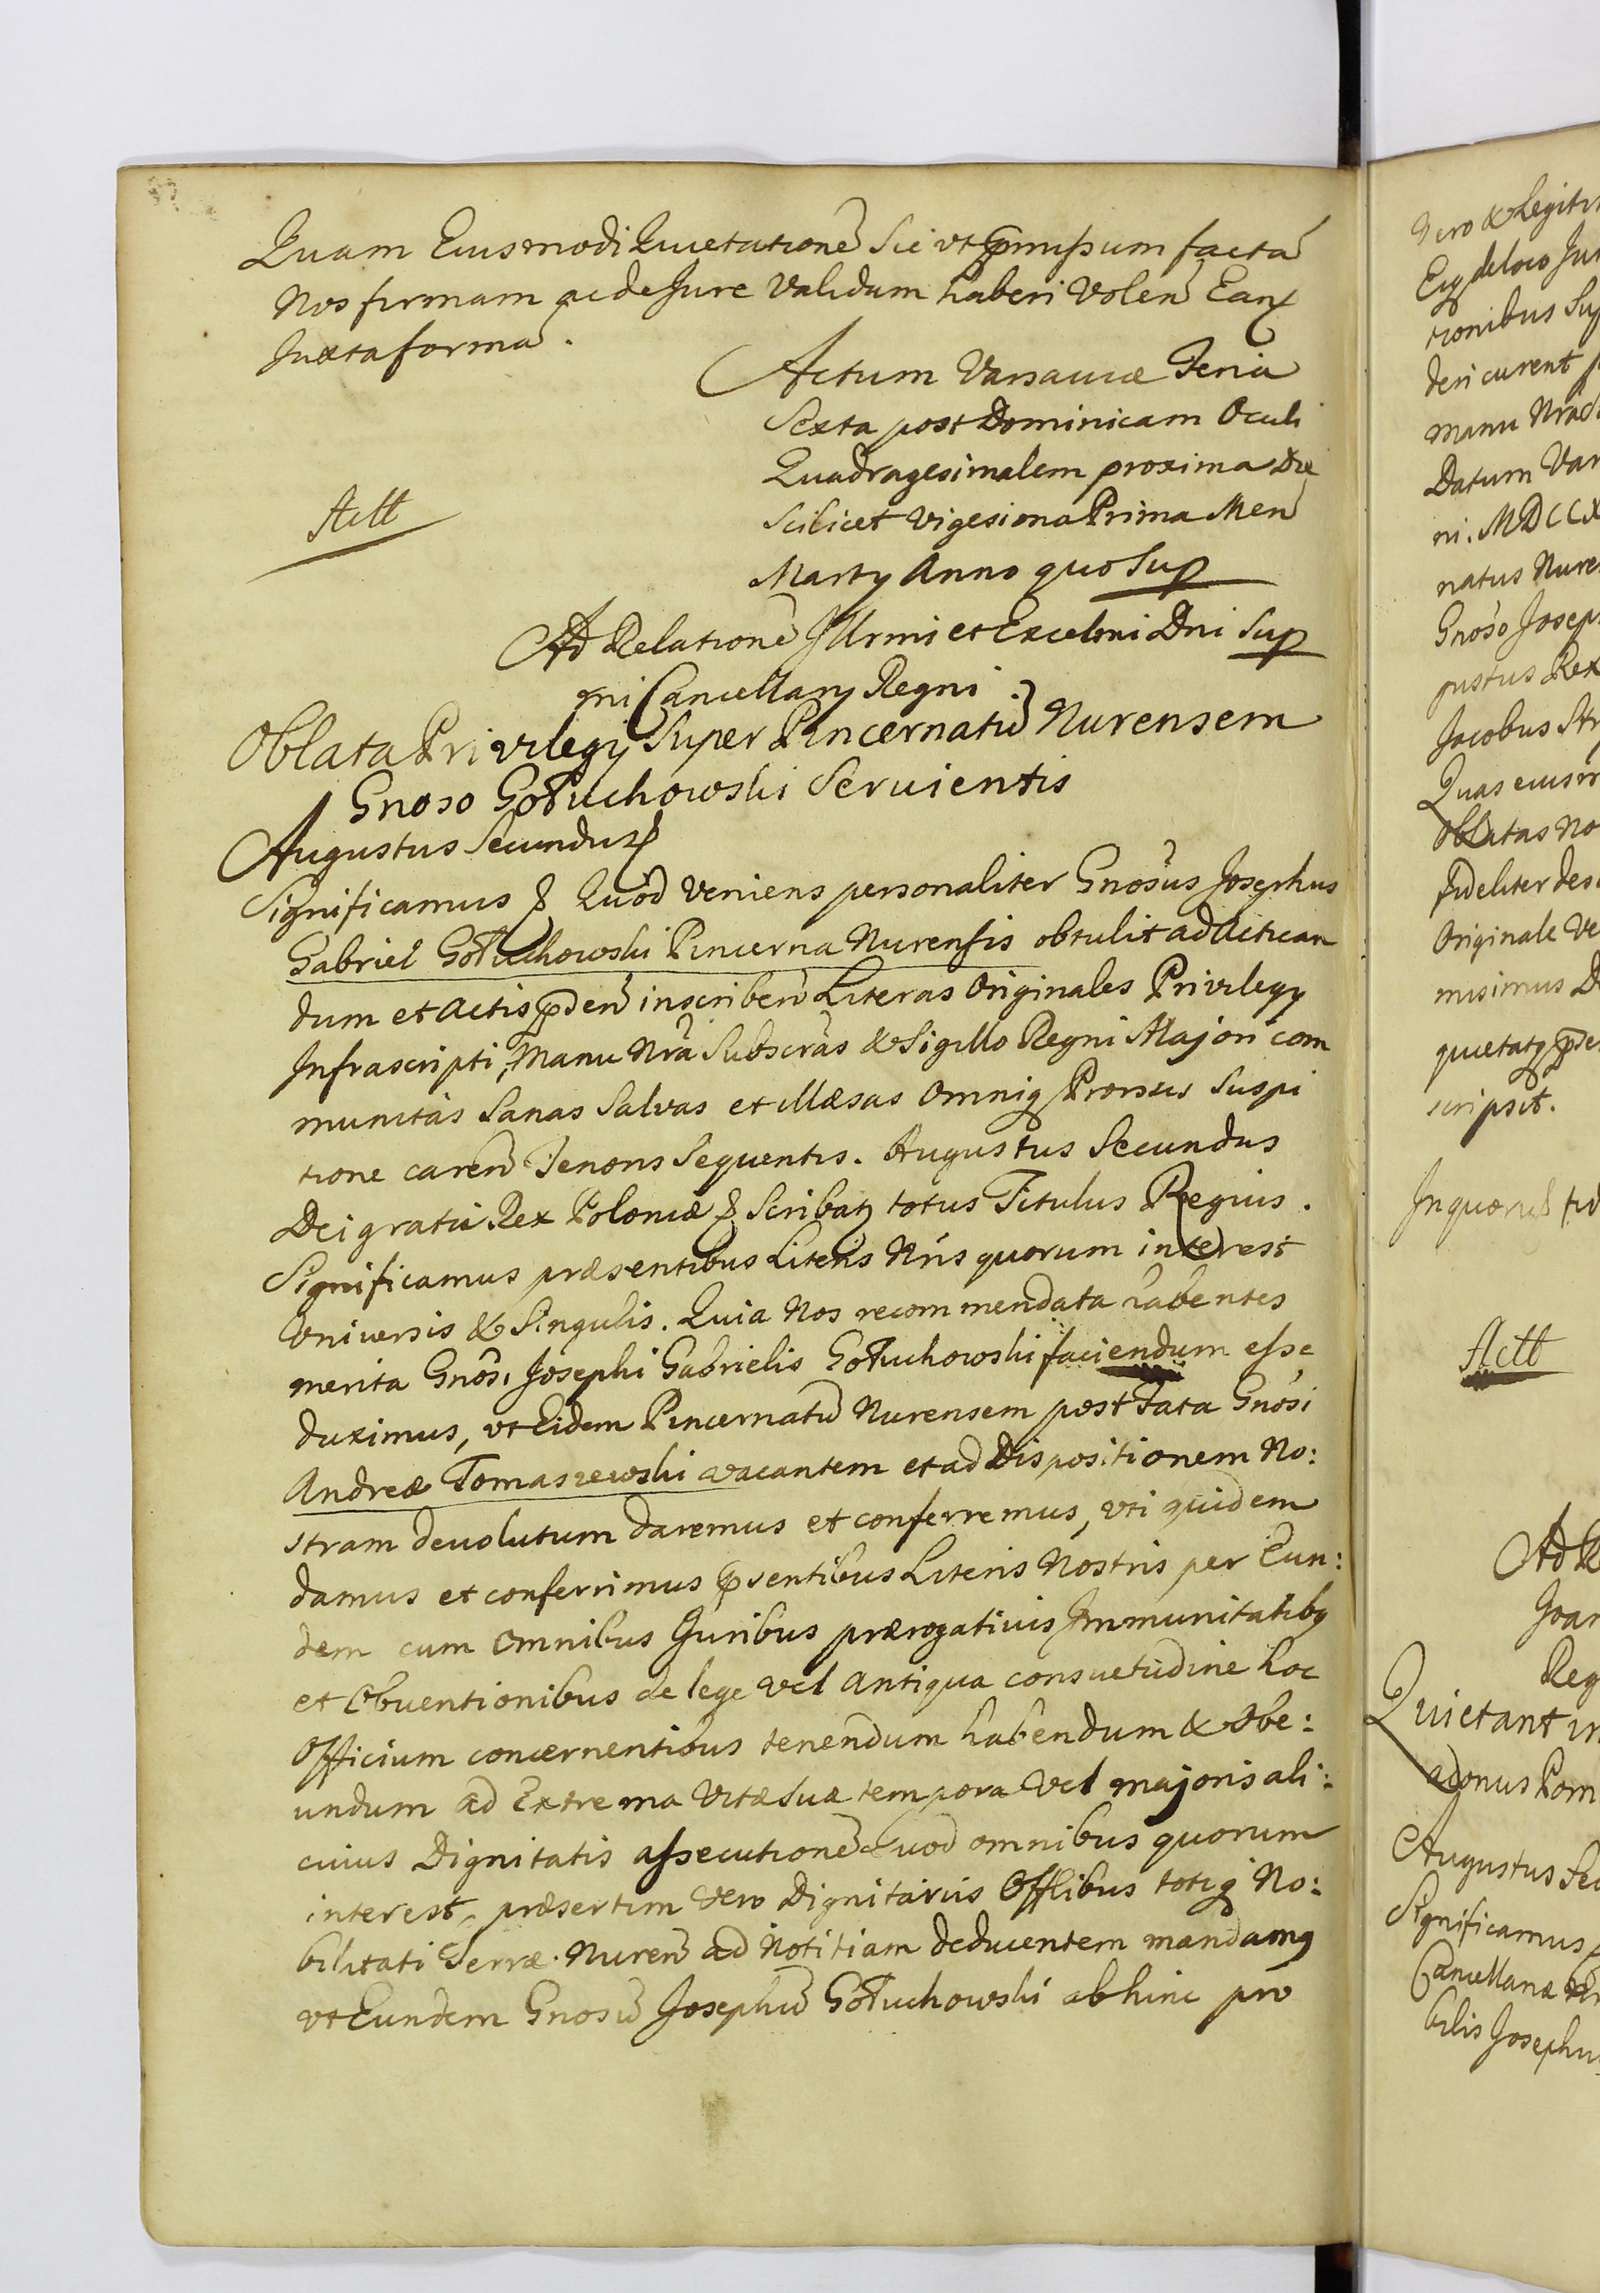 Quam Eiusmodi Quietationẽ Sic vt pmissum factã
Nos firmam ac de Jure Validam haberi Volen̄ Ean
Juxta formã.
Actum Varsaviæ Feria
Sexta post Dominicam Oculi
Quadragesimalem proxima Die
Scilicet vigesiona Prima Men̄
Martÿ Anno quo Sup
Actt
Ad Relationẽ Illrmi et Excelmi Dni Sup
mi Cancellarÿ Regni.
Oblata Privilegÿ Super Pincernatũ Nurensem
Gnoso Gołuchowski Servientis
Augustus Secundus
Significamus & Quod Veniens personaliter Gnosus Josephus
Gabriel Gołuchowski Pincerna Nurensis obtulit ad Actican
dum et Actis pden̄ inscriben̄ Literas Originales Privilegÿ
Infrascripti, Manu Nrã Subscrãs & Sigillo Regni Majori com
munitãs Sanas Salvas et illæsas Omniq Prorsus Suspi
tione caren̄ Tenoris Sequentis. Augustus Secundus
Dei gratia Rex Poloniæ & Scribat totus Titulus Regius.
Significamus præsentibus Literis Nris quorum interest
Universis & Singulis. Quia Nos recommendata habentes
merita Gnosi Josephi Gabrielis Gołuchowski faciendum esse
duximus, vt Eidem Pincernatũ Nurensem post Fata Gnosi
Andreæ Tomaszewski vacantem et ad Dispositionem No:
stram devolutum daremus et conferremus, vti quidem
damus et conferimus psentibus Literis Nostris per Eun:
dem cum Omnibus Juribus prærogativis Immunitatibq
et Obventionibus de lege Vel Antiqua consuetudine hoc
Officium concernentibus tenendum habendum & Obe:
undum ad Extrema Vitæ Suæ tempora Vel majoris ali:
cuius Dignitatis assecutionẽ Quod omnibus quorum
interest, præsertim Vero Dignitariis Offlibus totiq No:
bilitati Terræ Nuren̄ ad Notitiam deducentem mandamq
vt Eundem Gnosũ Josephũ Gołuchowski abhinc pro
Vero & Legiti
Eiq de loco Ju
tionibus Su
deri curent
Manu Nra
Datum Var
ni. MDCCX
natus Nure
Gnoso Josep
gustus Rex
Jacobus Str
Quas eius
Oblatas No
fideliter des
Originale Ve
misimus D
quietatq pde
scripsit.
In quorũ fid
Actt
Ad R
Joan
Reg
Quietant in
Augustus Sec
Significamus
Cancellariæ
bilis Josephu